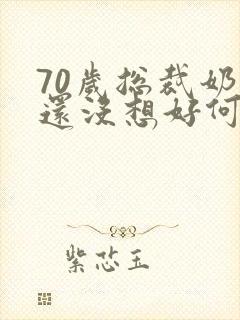 70歲総裁奶
還沒想好何
紫芯玉